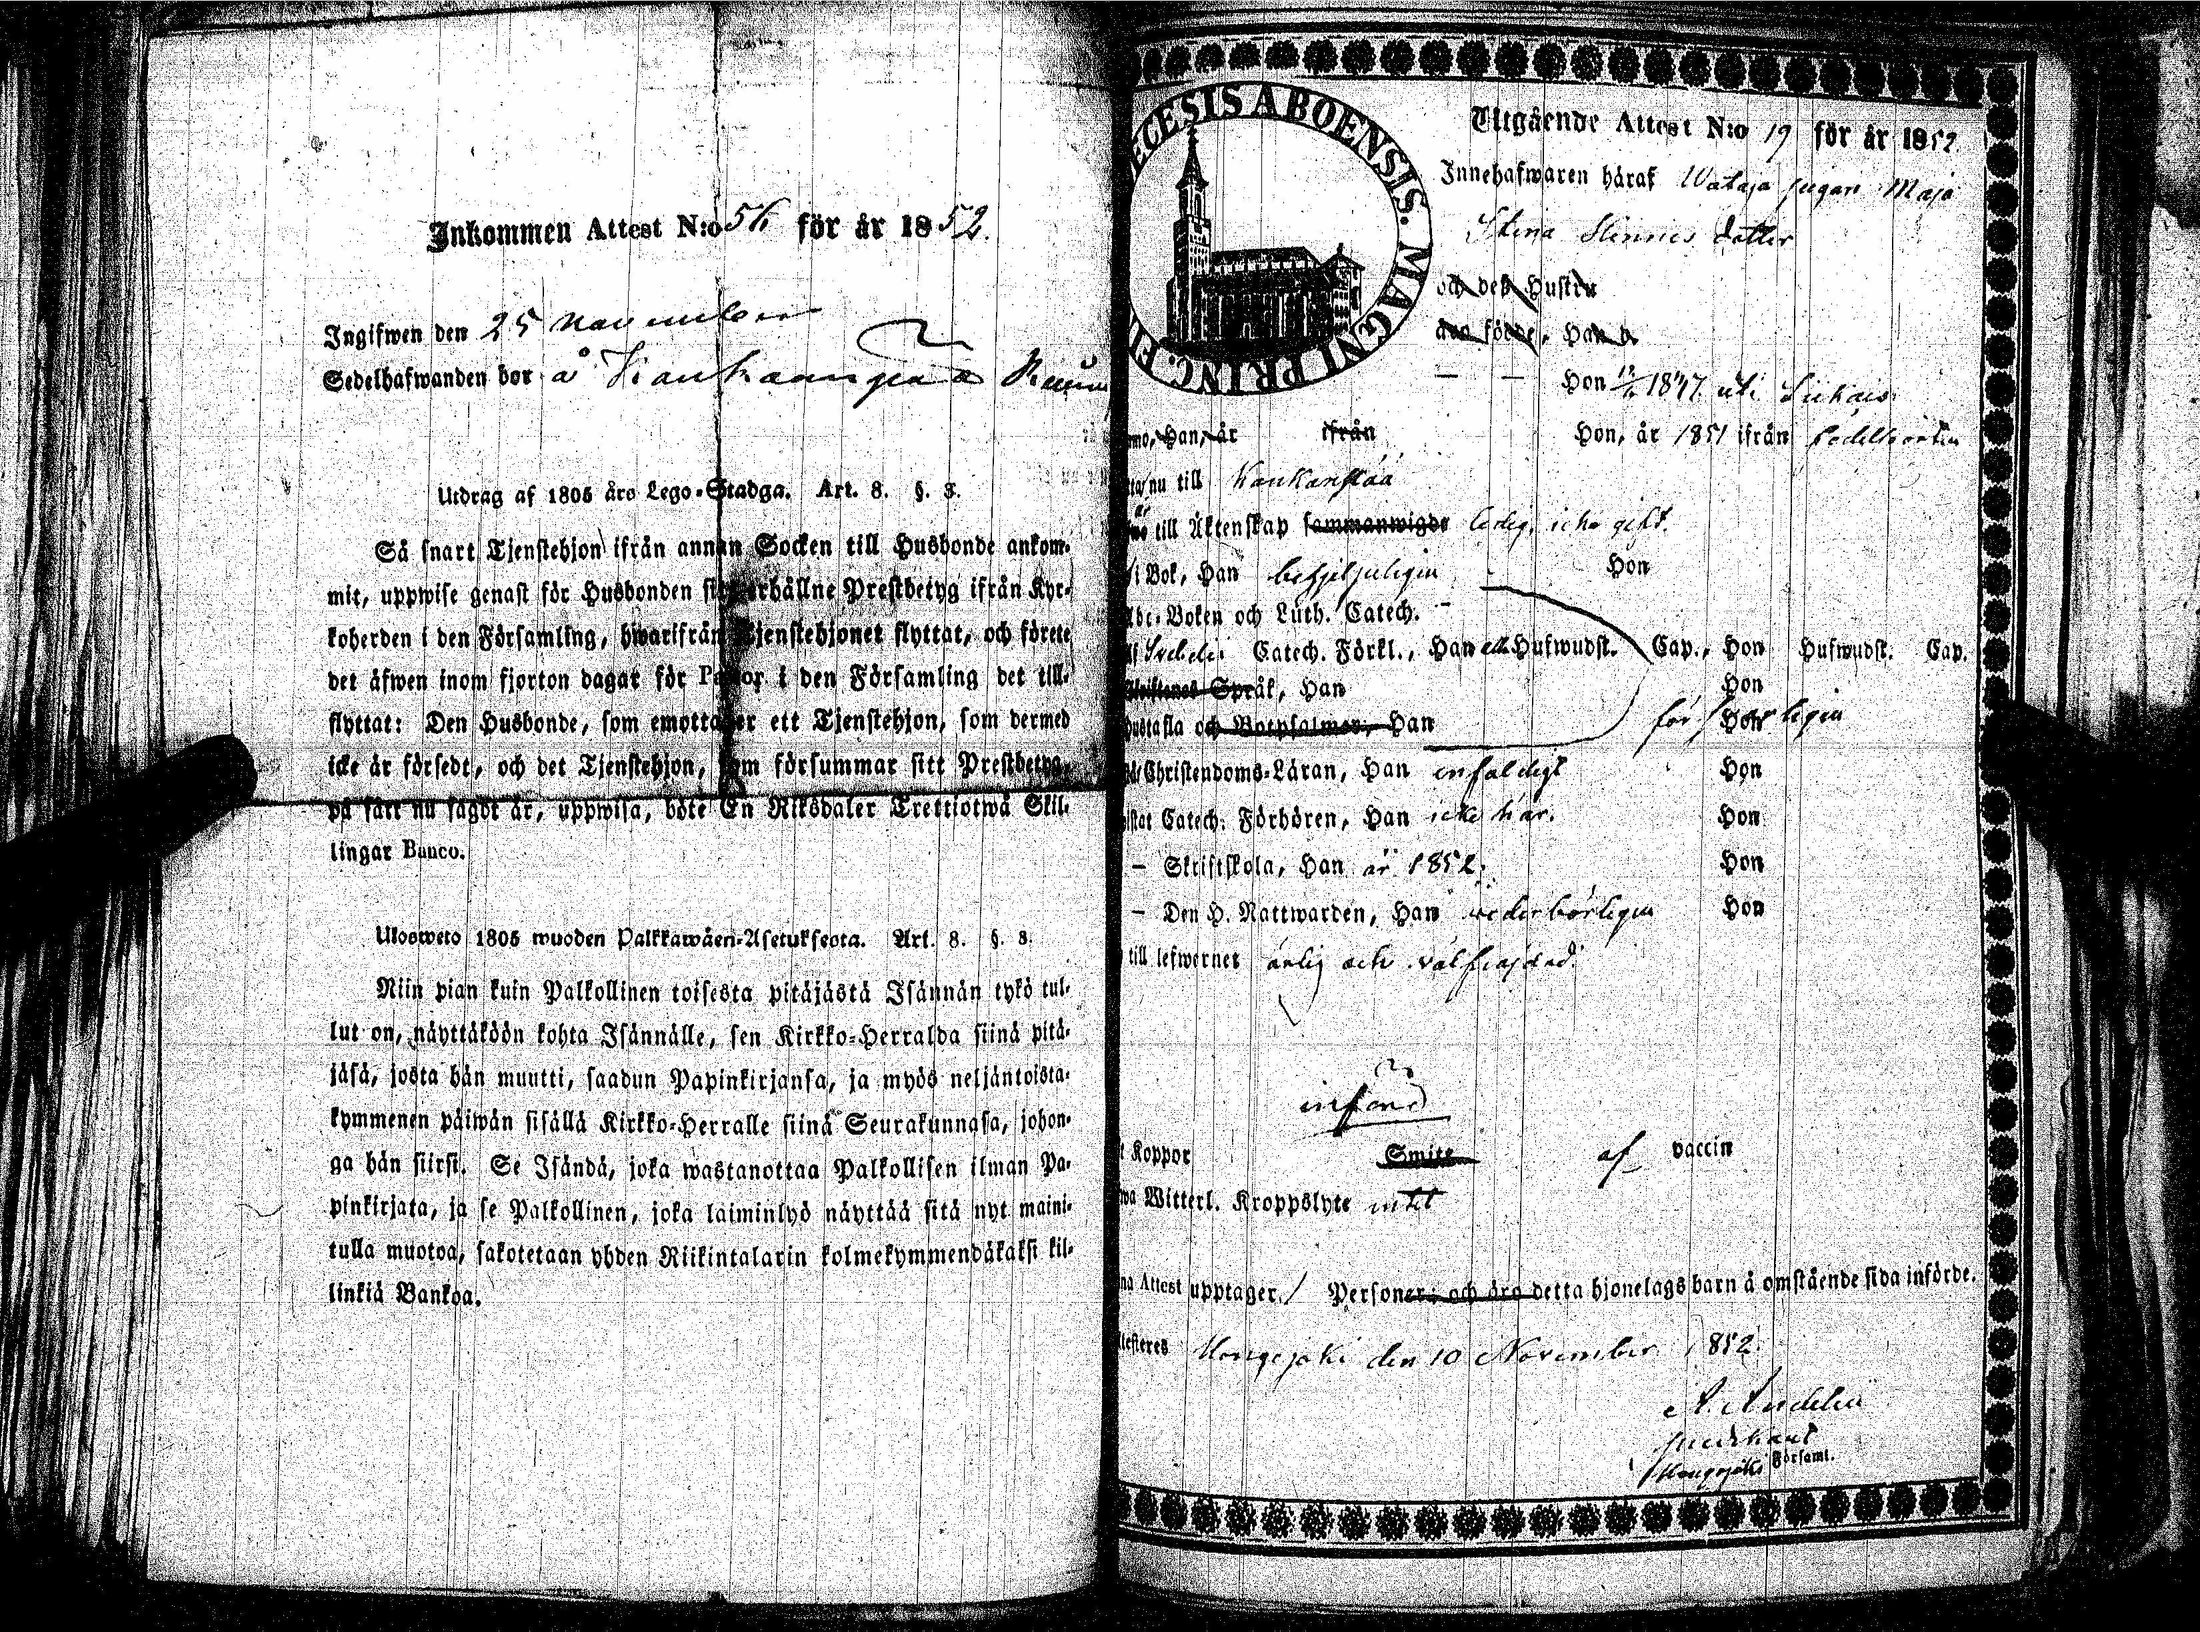 Inkommen Attest N:o 56 för år 1852.
Ingifwen den 25 November
Sedelhafwanden bor å Kankaanpää
Utdrag af 1805 års Lego-Stadga. Art. 8. §. 3.
Så snart Tjenstehjon ifrån annan Socken till Husbonde ankom-
mit, uppwise genast för Husbonden sitt erhållne Prestbetyg ifrån Kyr-
koherden i den Församling, hwarifrån Tjenstehjonet flyttat, och förete
det äfwen inom fjorton dagar för Pastor i den Församling det till-
flyttat: Den Husbonde, som emottager ett Tjenstehjon, som dermed
icke är försedt, och det Tjenstehjon, som försummar sitt Prestbetyg,
på sätt nu sagdt är, uppwisa, böte En Riksdaler Trettiotwå Skil-
lingar Banco.
Ulosweto 1805 wuoden Palkkawäen-Asetuksesta. Art. 8. §. 3.
Niin pian kuin Palkollinen toisesta pitäjästä Isännän tykö tul-
lut on, näyttäköön kohta Isännälle, sen Kirkko-Herralda siinä pitä-
jäsä, josta hän muutti, saadun Papinkirjansa, ja myös neljäntoista-
kymmenen päiwän sisällä Kirkko-Herralle siinä Seurakunnasa, johon-
ga hän siirsi. Se Isändä, joka wastanottaa Palkollisen ilman Pa-
pinkirjata, ja se Palkollinen, joka laiminlyö näyttää sitä nyt maini-
tulla muotoa, sakotetaan yhden Riikintalarin kolmekymmendäkaksi kil-
linkiä Bankoa.
ECESIS ABOENSIS. MAGNI PRINC. FI
Utgående Attest N:o 19 för år 1852
Innehafwaren häraf Maja
Stina dotter
och deß Hustru
äro födde, Han
Hon 1847 uti
Han, år ifrån Hon, år 1851 ifrån
nu till Kankanpää
är till Äktenskap sammanwigde ledig, icke gift.
i Bok, Han Hon
Abc-Boken och Luth. Catech.
Catech. Förkl., Han Hufwudst. Cap., Hon Hufwudst. Cap.
Skriftenes Språk, Han Hon
Hustafla och Botpsalmer, Han Hon
Christendoms-Läran, Han enfaldigt Hon
Catech. Förhören, Han icke har. Hon
– Skriftskola, Han år 1852. Hon
– Den H. Nattwarden, Han wederbörligen Hon
till lefwernet ärlig och välfrejdad.
införd
Koppor Smitt af vaccin
Witterl. Kroppslyte intet
na Attest upptager 1 Personer, och äro detta hjonelags barn å omstående sida införde.
den 10 November 1852.
A.
Församl.